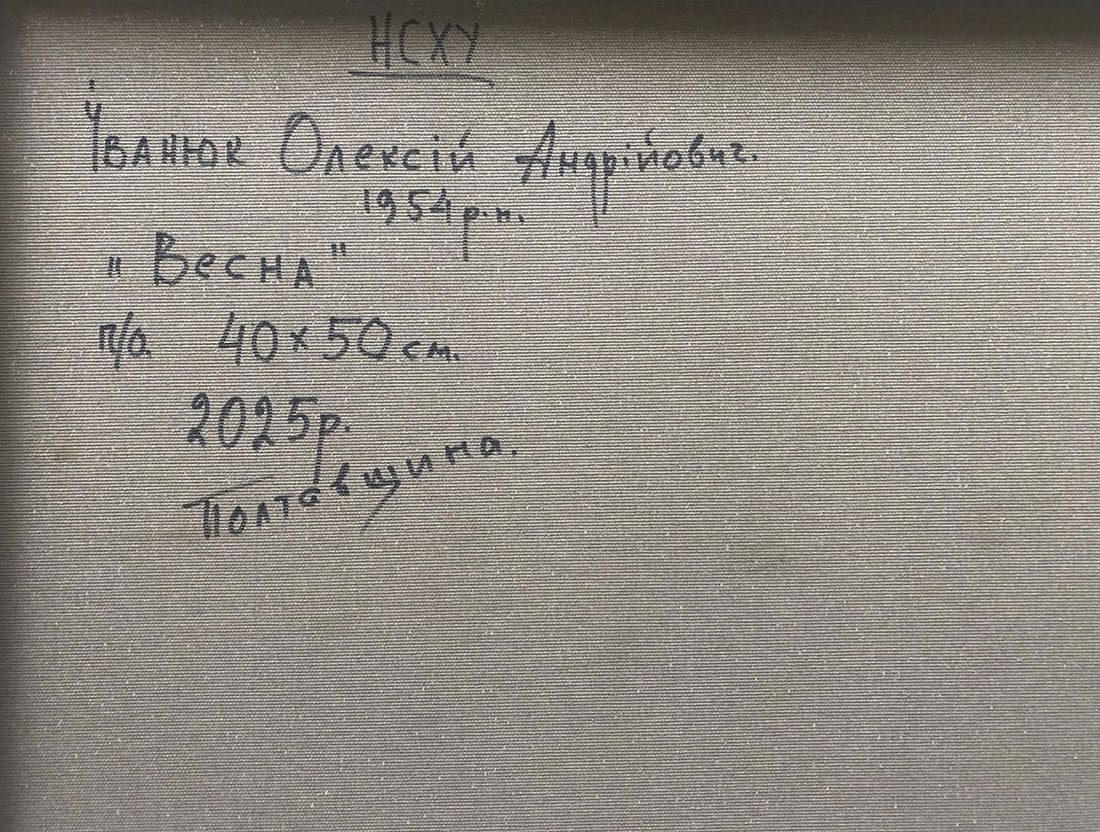 НСХУ
Іванюк Олексій Андрійович.
1954 р.н.
"Весна"
п/о. 40х50 см.
2025р.
Полтавщина.